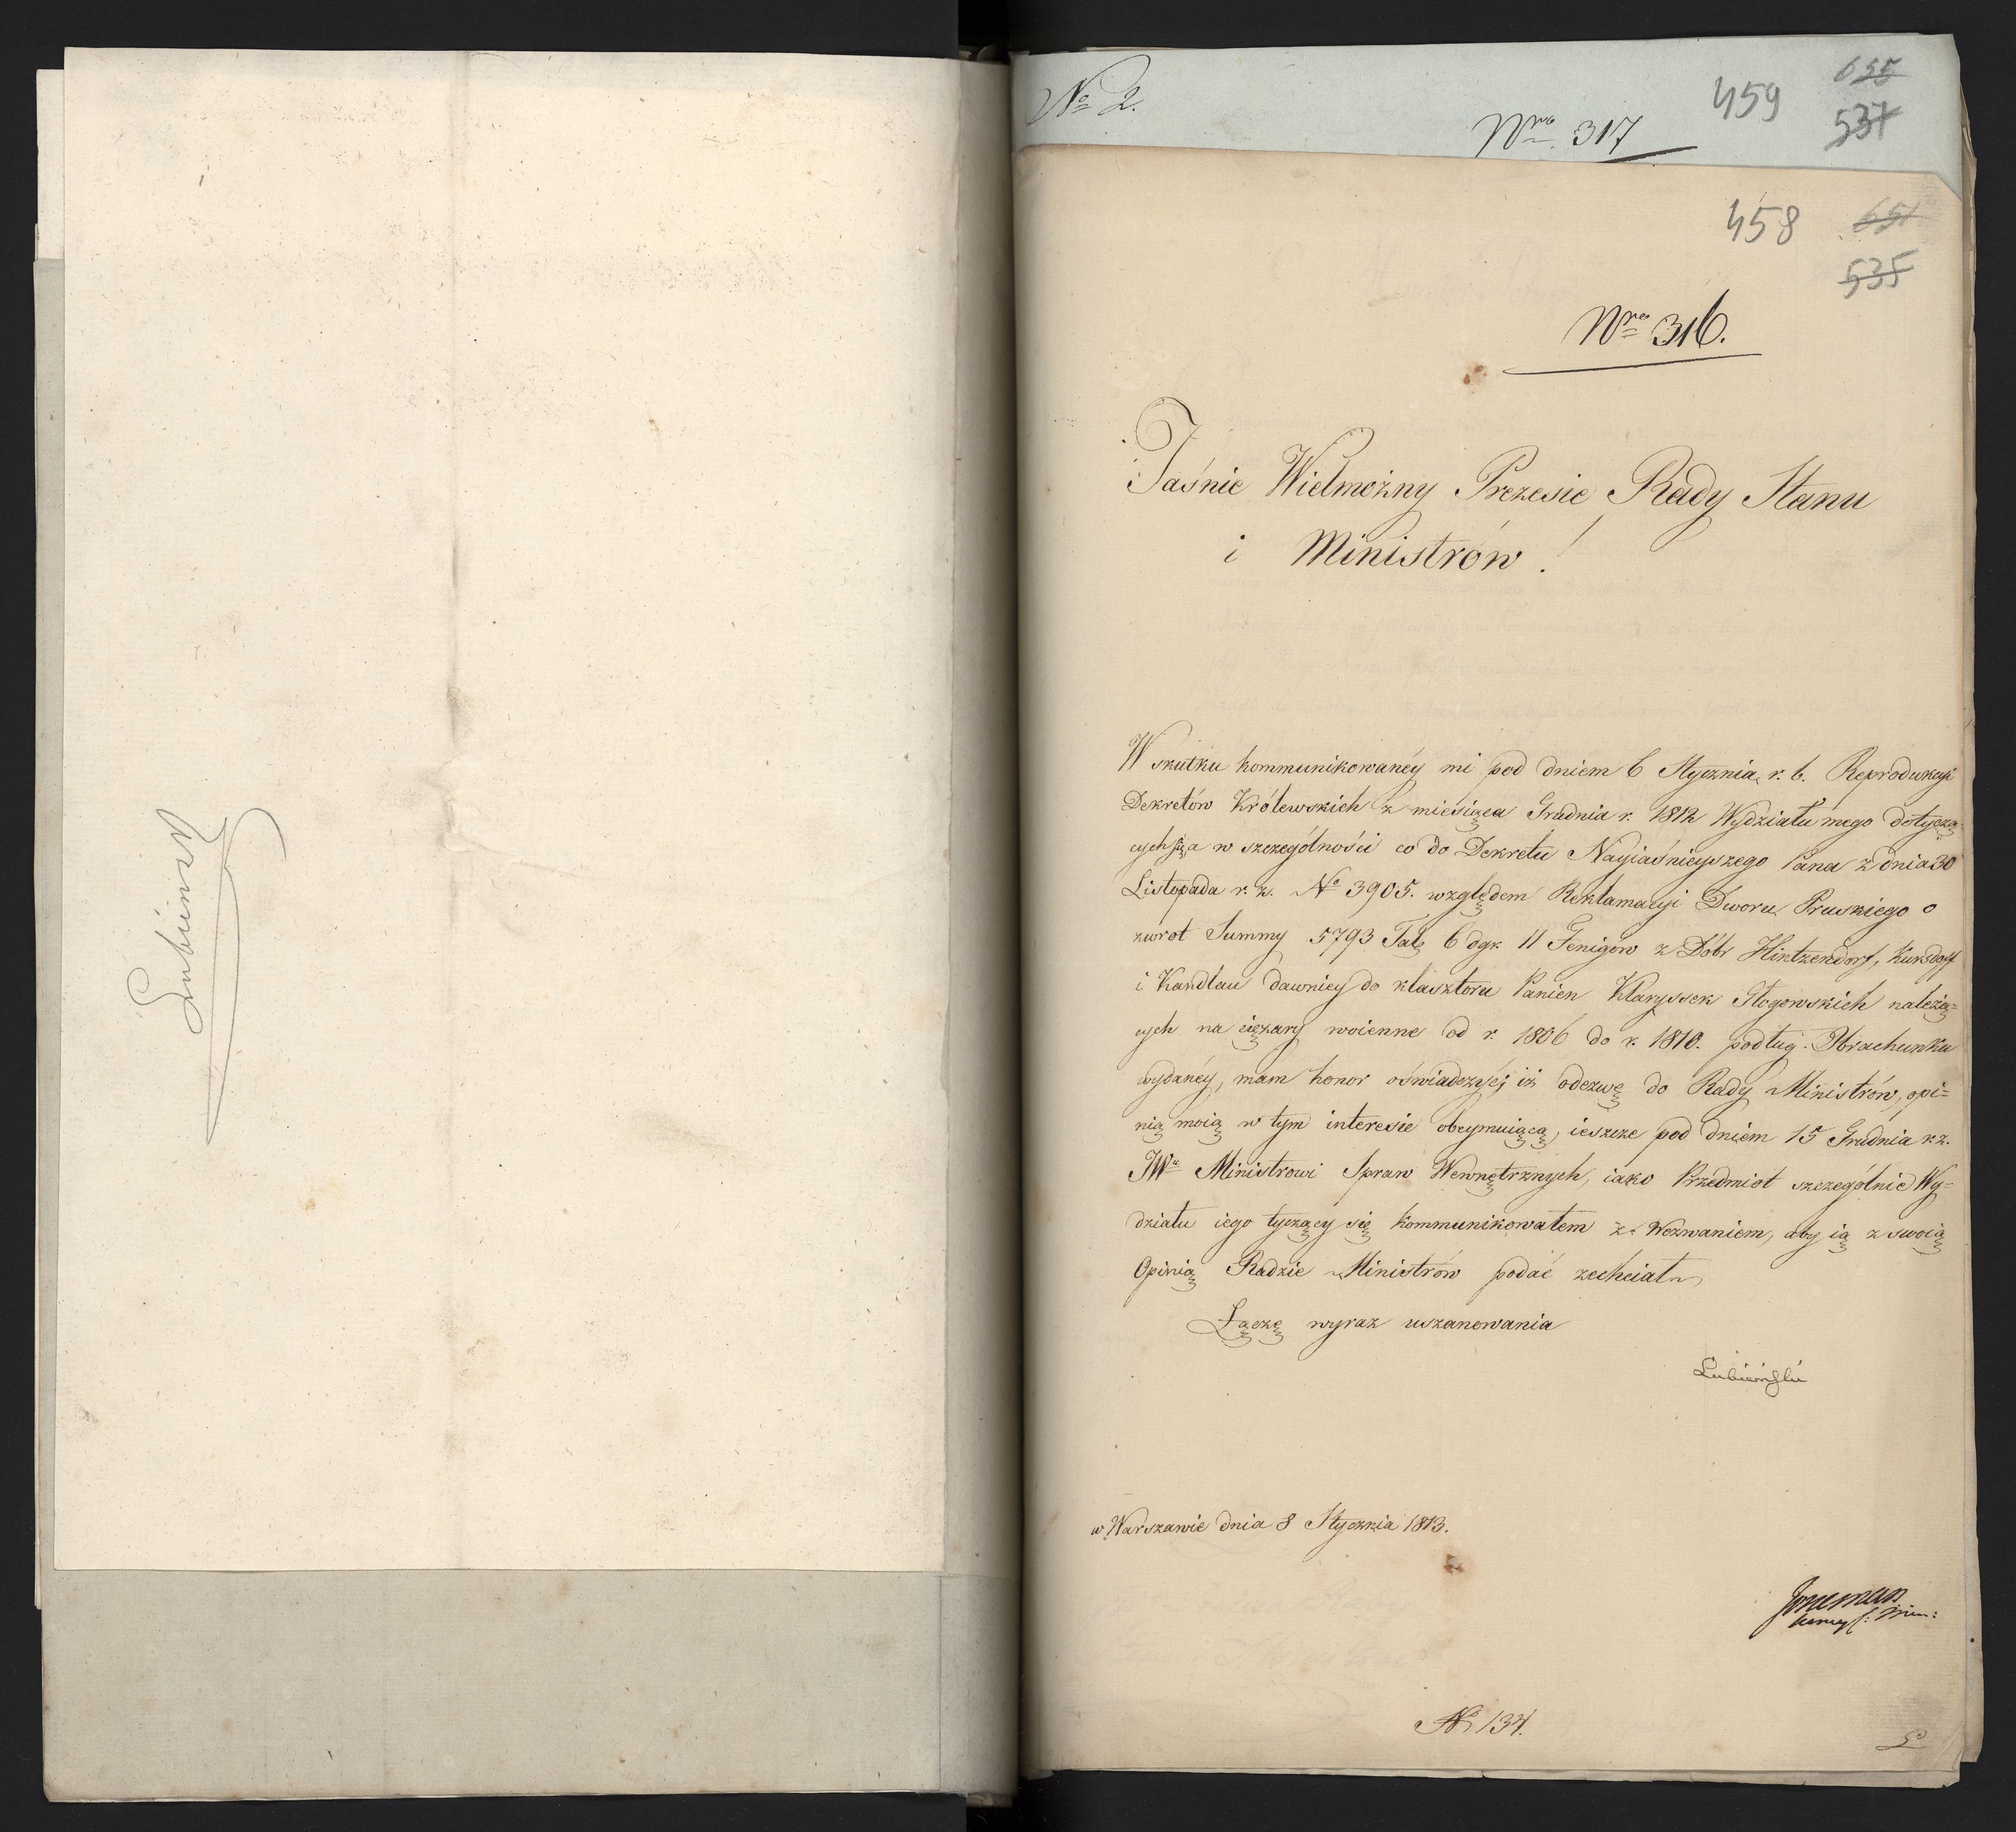 Łubieński
№ 2.
459
655
537
Nro 317
458
651
535
Nro 316.
Jaśnie Wielmożny Prezesie Rady Stanu
i Ministrów!
W skutku kommunikowanéy mi pod dniem 6 Stycznia r. b. Reprodukcyi
Dekretów Królewskich z miesiąca Grudnia r. 1812 Wydziału mego dotyczą-
cych się, a w szczególności co do Dekretu Nayiaśnieyszego Pana z dnia 30
Listopada r. z. № 3905. względem Reklamacyi Dworu Pruskiego o
zwrot Summy 5793 Tal. 6 dgr. 11 Fenigow z Dóbr Hintzendorf, Kursdorf
i Kandlau dawniey do klasztoru Panien Klaryssek Głogowskich należą=
cych na ciężary woienne od r. 1806 do r. 1810. podług Obrachunku
wydanéy, mam honor oświadczyć; iż odezwę do Rady Ministrów, opi=
nią moią w tym interesie obeymuiącą, ieszcze pod dniem 15 Grudnia r. z.
JWu Ministrowi Spraw Wewnętrznych, iako Przedmiot szczególnie Wy=
działu iego tyczący się kommunikowałem z Wezwaniem, aby ią z swoią
Opinią Radzie Ministrów podać zechciał
Łączę wyraz uszanowania
Łubieński
w Warszawie dnia 8 Stycznia 1813.
№ 134.